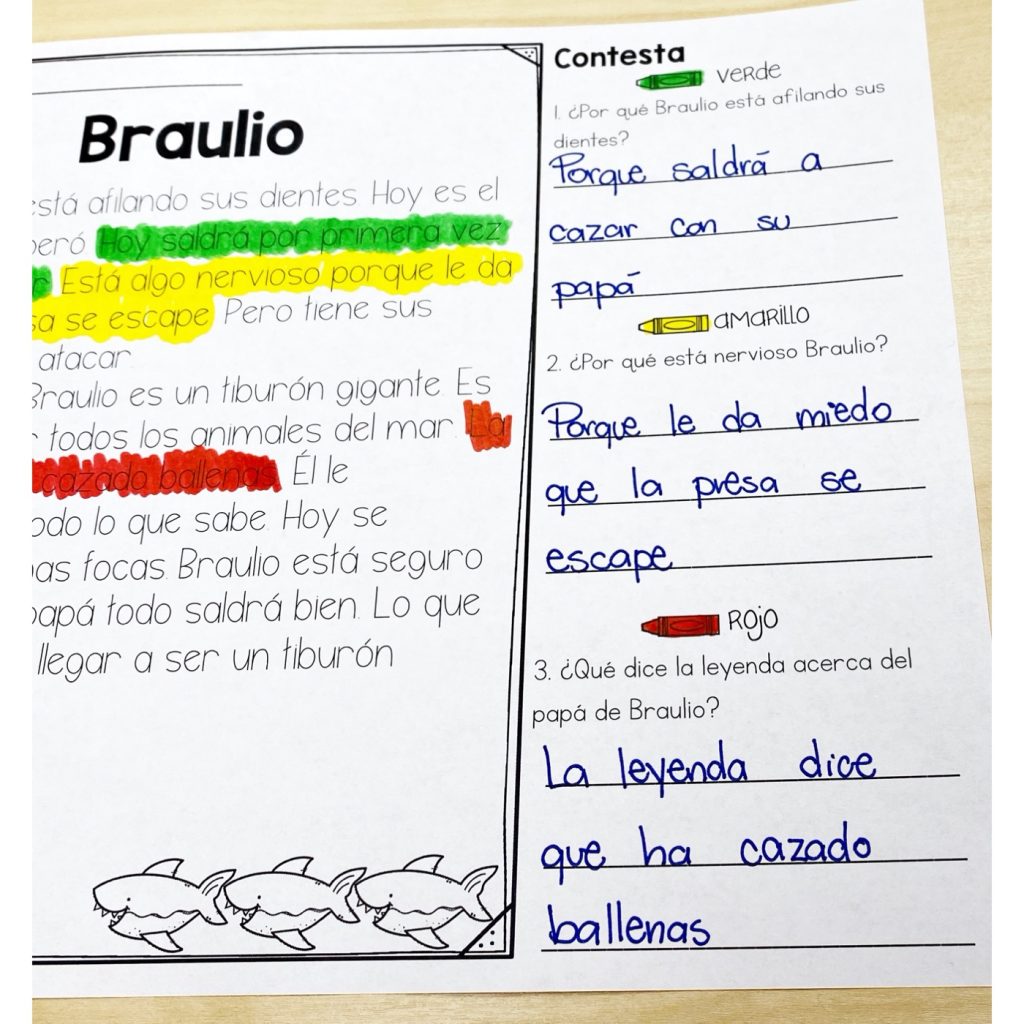 Braulio
está afilando sus dientes. Hoy es el
peró. Hoy saldrá por primera vez
Está algo nervioso porque le da
sa se escape. Pero tiene sus
atacar.
Braulio es un tiburón gigante. Es
todos los animales del mar. La
cazado ballenas. Él le
odo lo que sabe. Hoy se
as focas. Braulio está seguro
papá todo saldrá bien. Lo que
llegar a ser un tiburón
Contesta
verde
1. ¿Por qué Braulio está afilando sus
dientes?
Porque saldrá a
cazar con su
papá
amarillo
2. ¿Por qué está nervioso Braulio?
Porque le da miedo
que la presa se
escape
Rojo
3. ¿Qué dice la leyenda acerca del
papá de Braulio?
La leyenda dice
que ha cazado
ballenas